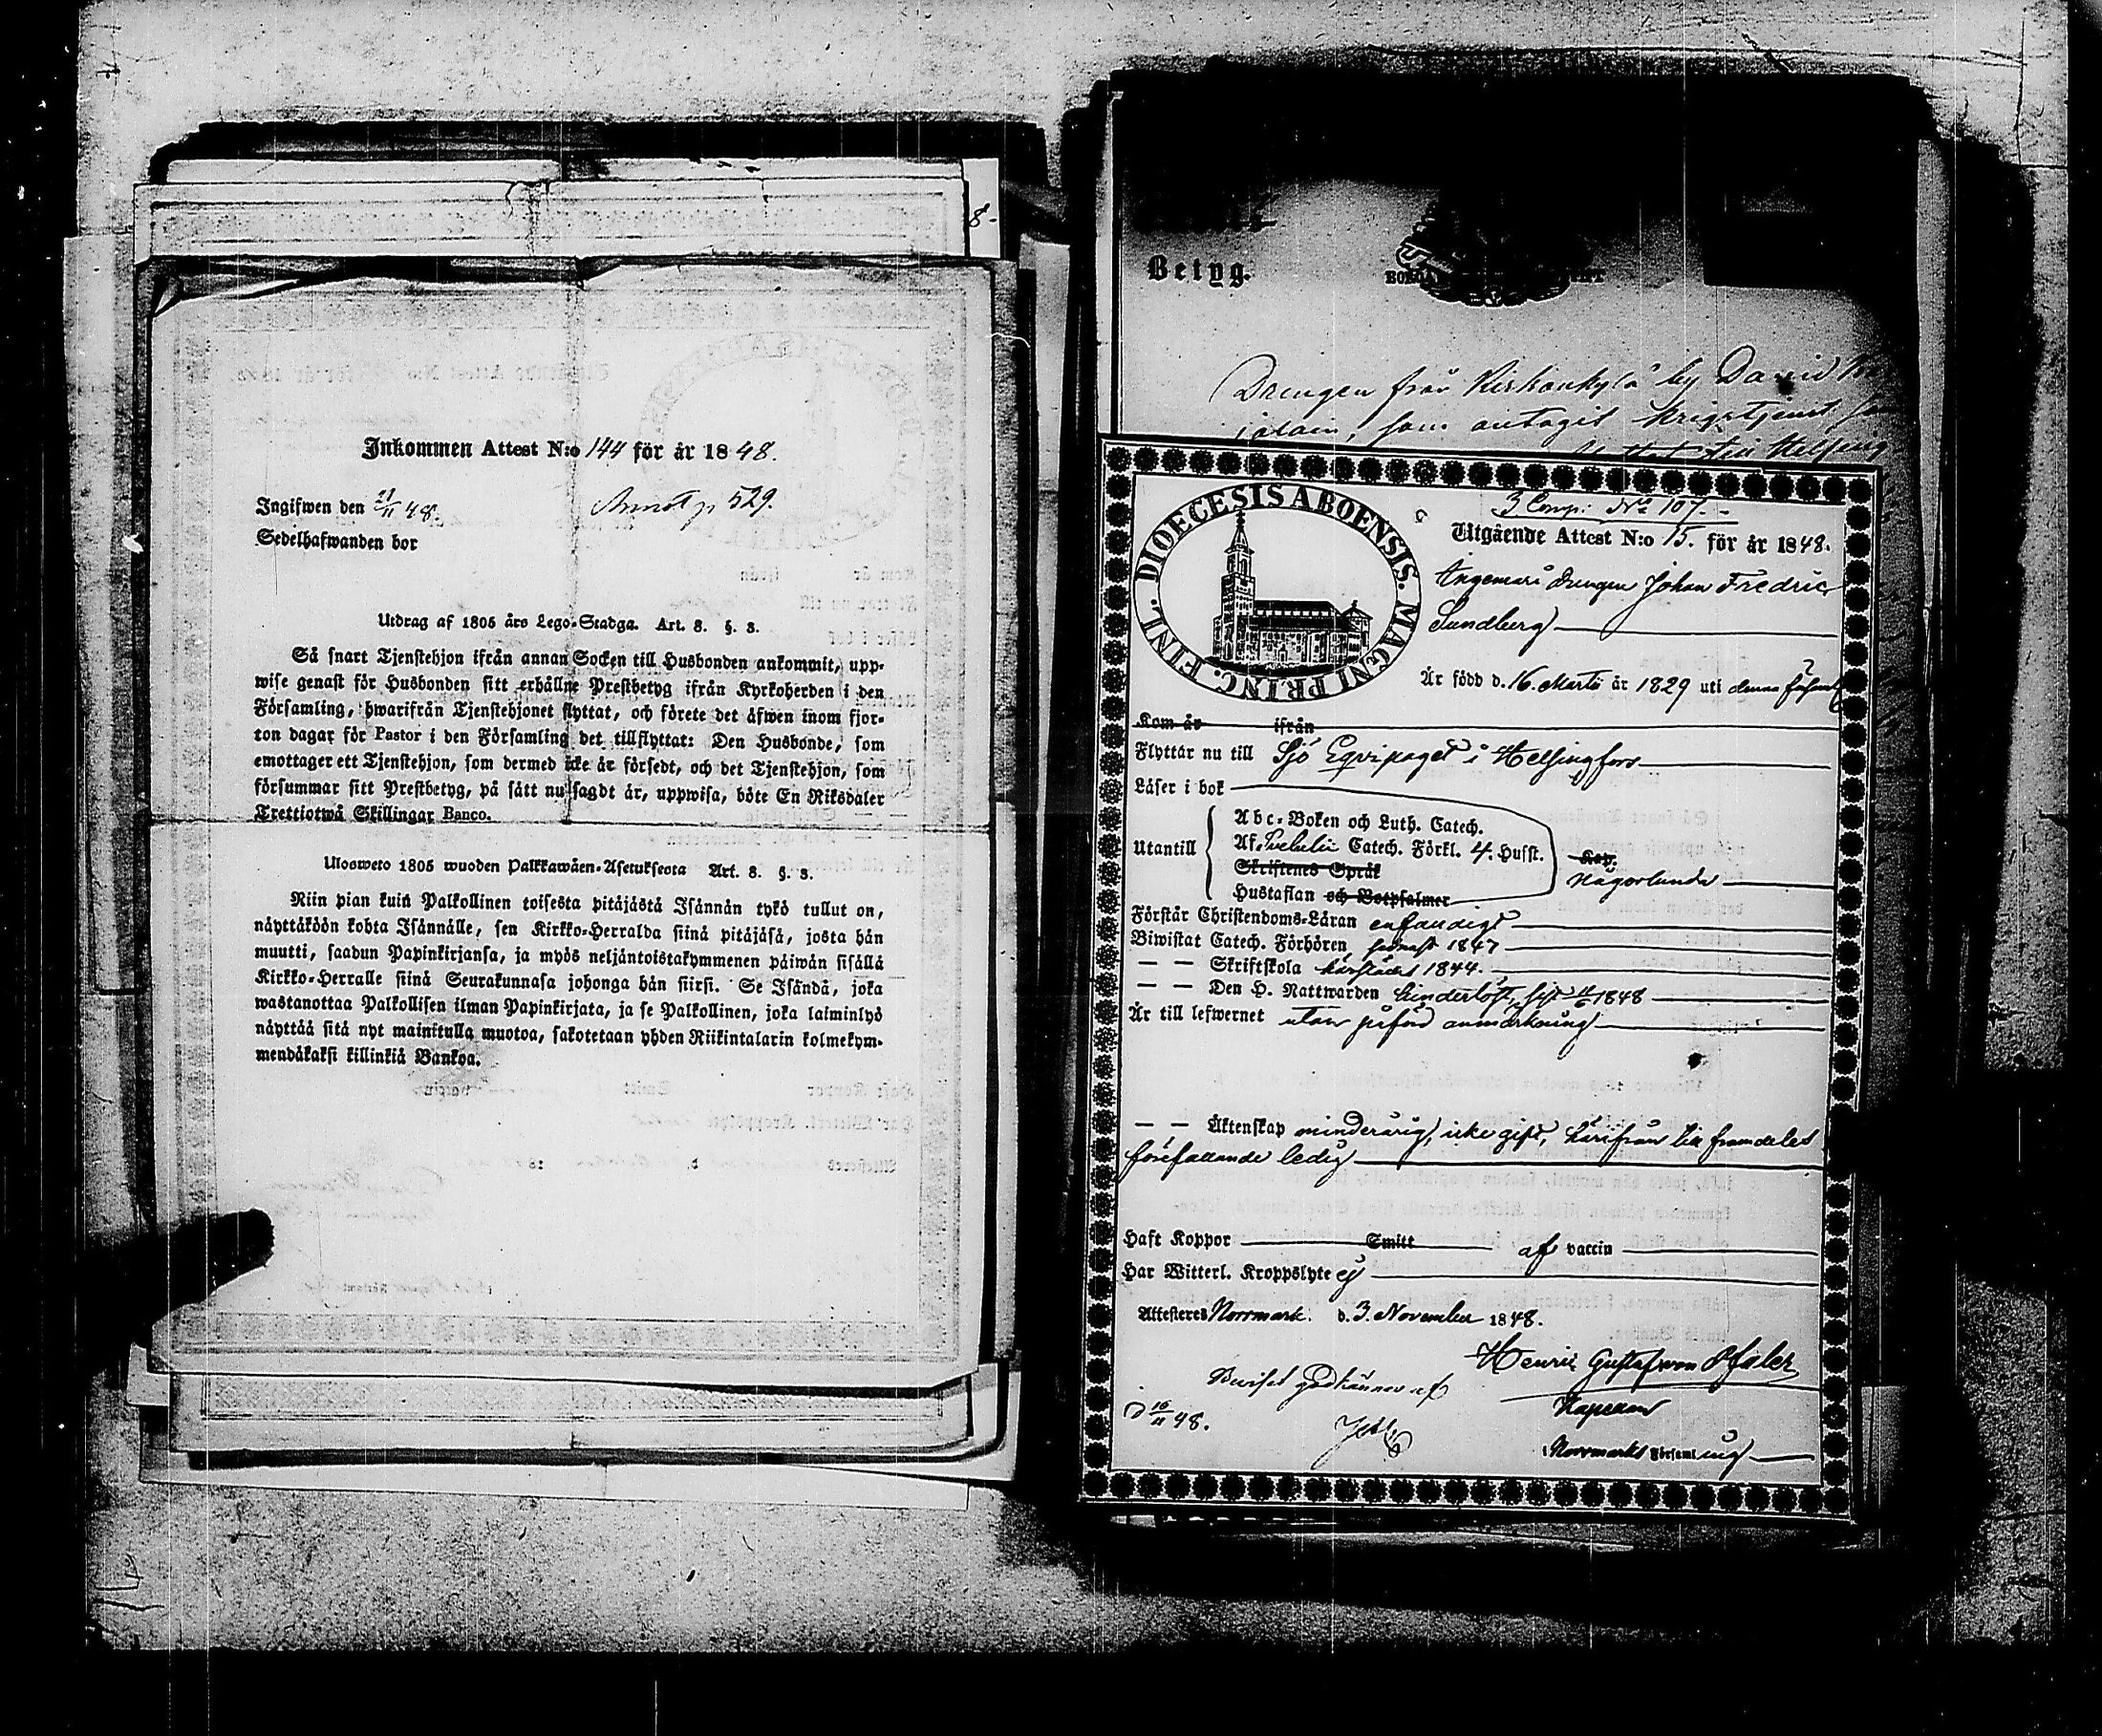 8-
Inkommen Attest N:o 144 för år 1848.
Ingifwen den 21/11 48.
Annot p 529.
Sedelhafwanden bor
Utdrag af 1805 års Lego-Stadga. Art. 8. §. 3.
Så snart Tjenstehjon ifrån annan Socken till Husbonden ankommit, upp-
wise genast för Husbonden sitt erhållne Prestbetyg ifrån Kyrkoherden i den
Församling, hwarifrån Tjenstehjonet flyttat, och förete det äfwen inom fjor-
ton dagar för Pastor i den Församling det tillflyttat: Den Husbonde, som
emottager ett Tjenstehjon, som dermed icke är försedt, och det Tjenstehjon, som
försummar sitt Prestbetyg, på sätt nu sagdt är, uppwisa, böte En Riksdaler
Trettiotwå Skillingar Banco.
Ulosweto 1805 wuoden Palkkawäen-Asetuksesta Art. 8. §. 3.
Niin pian kuin Palkollinen toisesta pitäjästä Isännän tykö tullut on,
näyttäköön kohta Isännälle, sen Kirkko-Herralda siinä pitäjäsä, josta hän
muutti, saadun Papinkirjansa, ja myös neljäntoistakymmenen päiwän sisällä
Kirkko-Herralle siinä Seurakunnasa johonga hän siirsi. Se Isändä, joka
wastanottaa Palkollisen ilman Papinkirjata, ja se Palkollinen, joka laiminlyö
näyttää sitä nyt mainitulla muotoa, sakotetaan yhden Riikintalarin kolmekym-
mendäkaksi killinkiä Bankoa.
Betyg.
Drengen från Kirkonkylä by David
som antagit krigstjenst
till Helsing
3 Comp: No 107.
DIOECESIS ABOENSIS. MAGNI PRINC. FINL.
Utgående Attest N:o 15. för år 1848.
drengen Johan Fredric
Sundberg
Är född d. 16. Martii år 1829 uti denna förs
Kom år ifrån
Flyttar nu till Sjö Eqvipaget i Helsingfors
Läser i bok
Utantill
Abc-Boken och Luth. Catech.
Af Svebelii Catech. Förkl. 4. Husst.
Skriftenes Språk
Hustaflan och Botpsalmer
Kap.
någorlunda
Förstår Christendoms-Läran enfaldigt
Biwistat Catech. Förhören senast 1847
— — Skriftskola härstädes 1844.
— — Den H. Nattwarden hinderlöst, sist 1848
Är till lefwernet utan anmärkning
— — Äktenskap minderårig, icke gift, härifrån till framdeles
förefallande ledig
Haft Koppor Smitt af vaccin
Har Witterl. Kroppslyte ej
Attesteres Norrmark. d. 3. November 1848.
Henric Gustaf von Pfaler
Kapellan
i Norrmarks Församling
Beviset godkännes af
d 16/11 48.